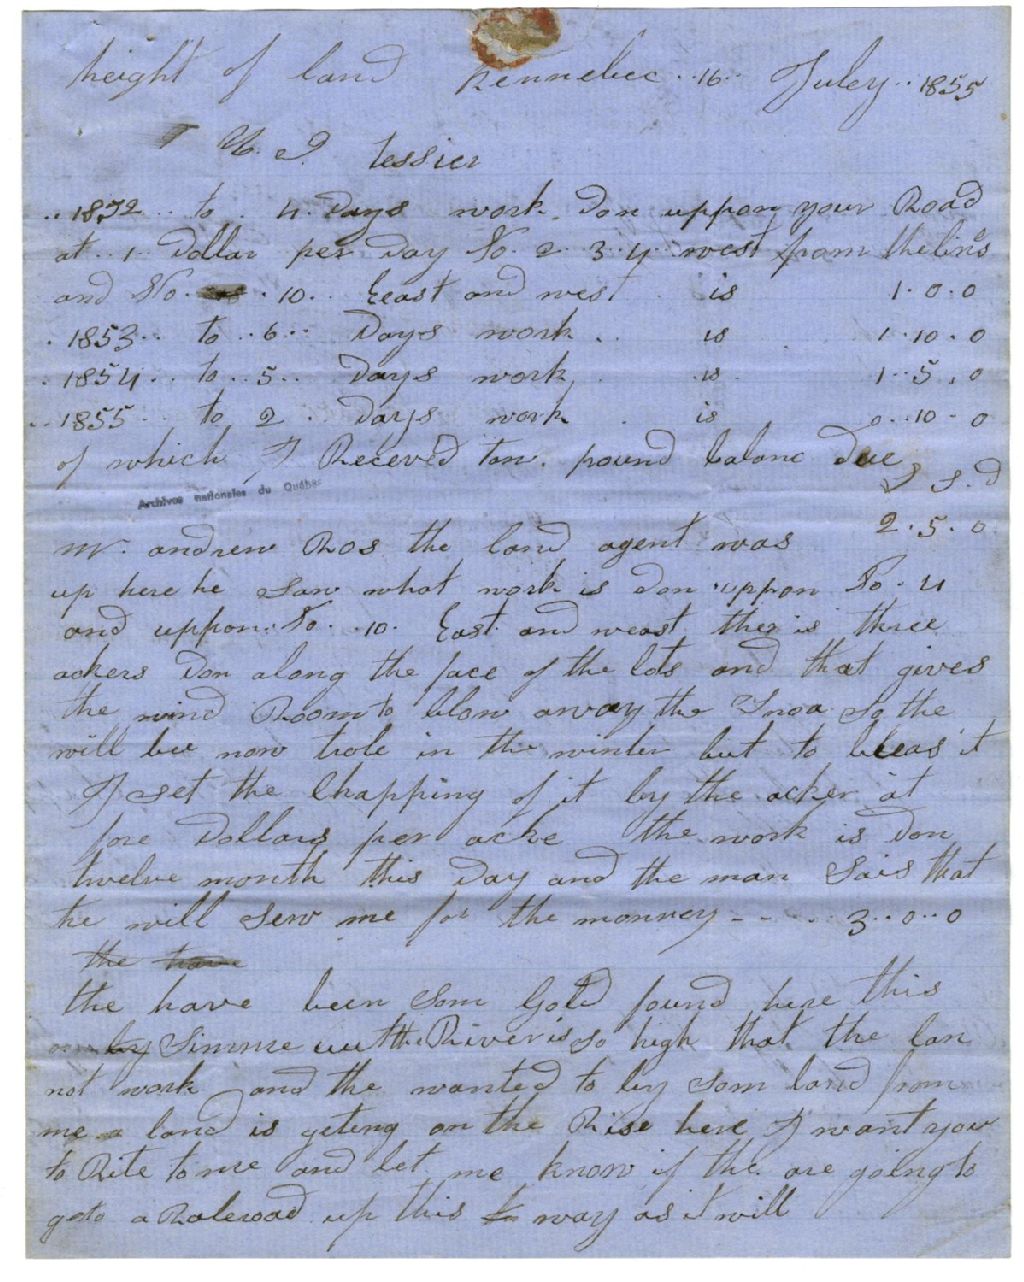 height of land Kennebec .. 16 .. Juley .. 1855
U. J Tessier
.. 1852 .. to . 4 Days work . Don uppon your Road
at . 1 . Dollar per Day No. 2 . 3 . 4 . west from the line
and No. 10 .. Eeast and west is 1 . 0 . 0
. 1853 .. to .. 6 .. Days work .. is 1 . 10 . 0
. 1854 .. to .. 5 .. Days work is 1 . 5 . 0
. 1855 .. to 2 . Days work . is . 0 .. 10 . 0
of which I Receved tow . pound balanc due
Archives nationales du Québec
S . d
2 . 5 . 0
Mr. andrew Ros the land agent was
up here he Saw what work is don uppon No . 4
and uppon . No . 10 . East and weast ther is three
ackers Don along the face of the lots and that gives
the wind Room to blow away the Snoa So the
will bee now trole in the winter but to bleas it
I Set the Chapping of it by the acker at
fore Dollars per acke the work is Don
twelve month this Day and the man Sais that
he will Sew me for the monney - - . . 3 .. 0 .. 0
the
the have been Som Gold found here this
by Simme the River is So high that the Can
not work and the wanted to by Som land from
me a land is geting on the Rise here I want you
to Rite to me and let me know if the are going to
goto a Raleroad up this way as it will